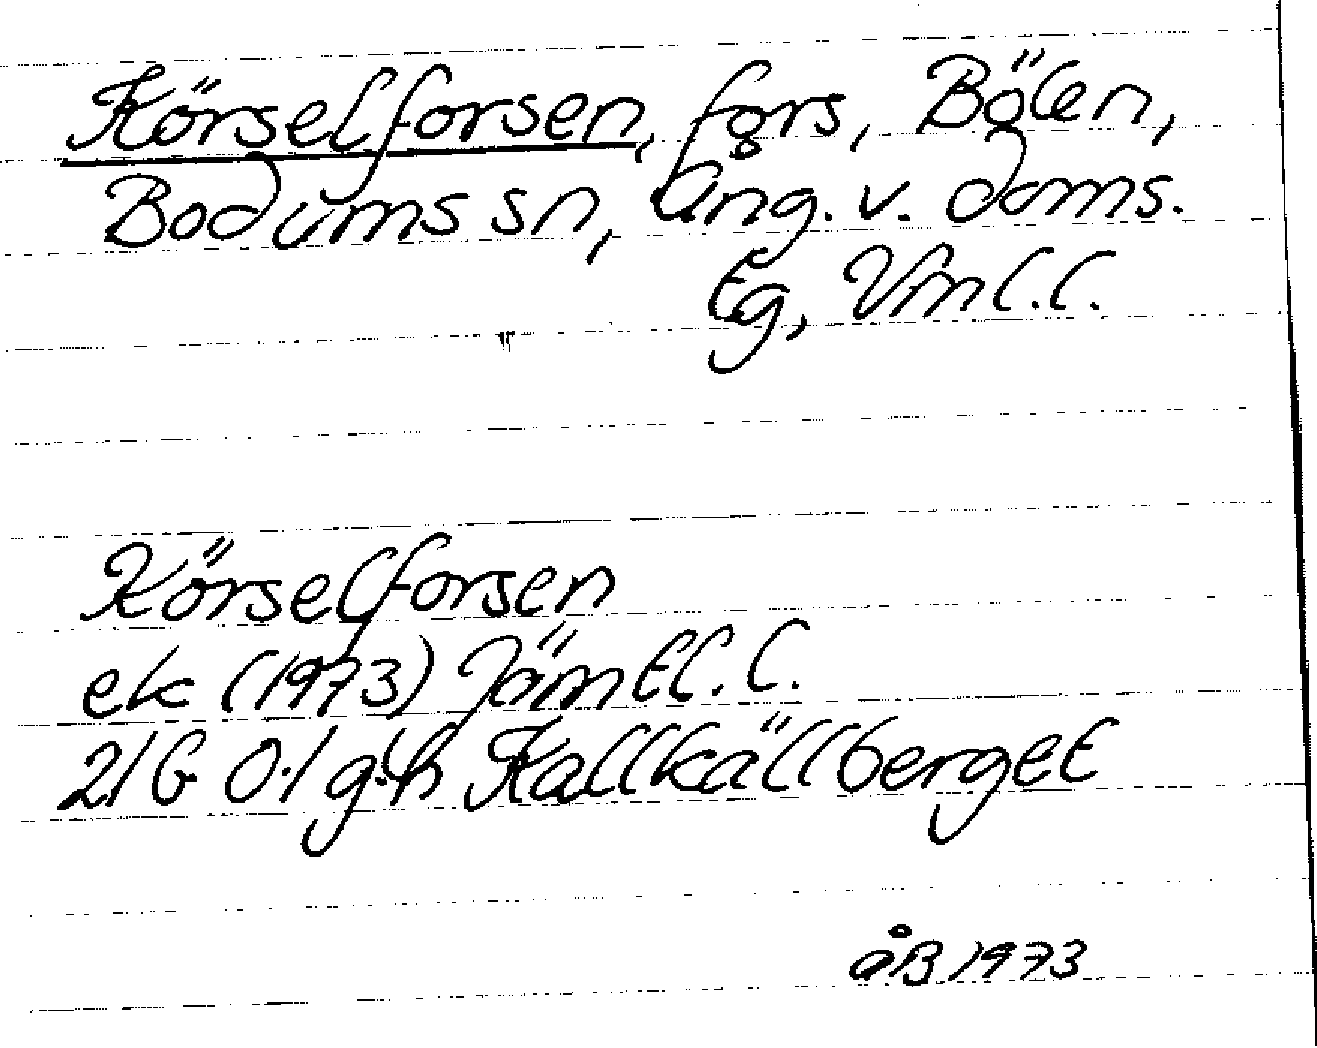 Körselforsen, fors, Bölen,
Bodums sn, Ång. v. doms.
Eg, Vml. l.
Körselforsen
ek (1973) Jämtl. l.
21G 0-1 g-h Kallkällberget
åB 1973